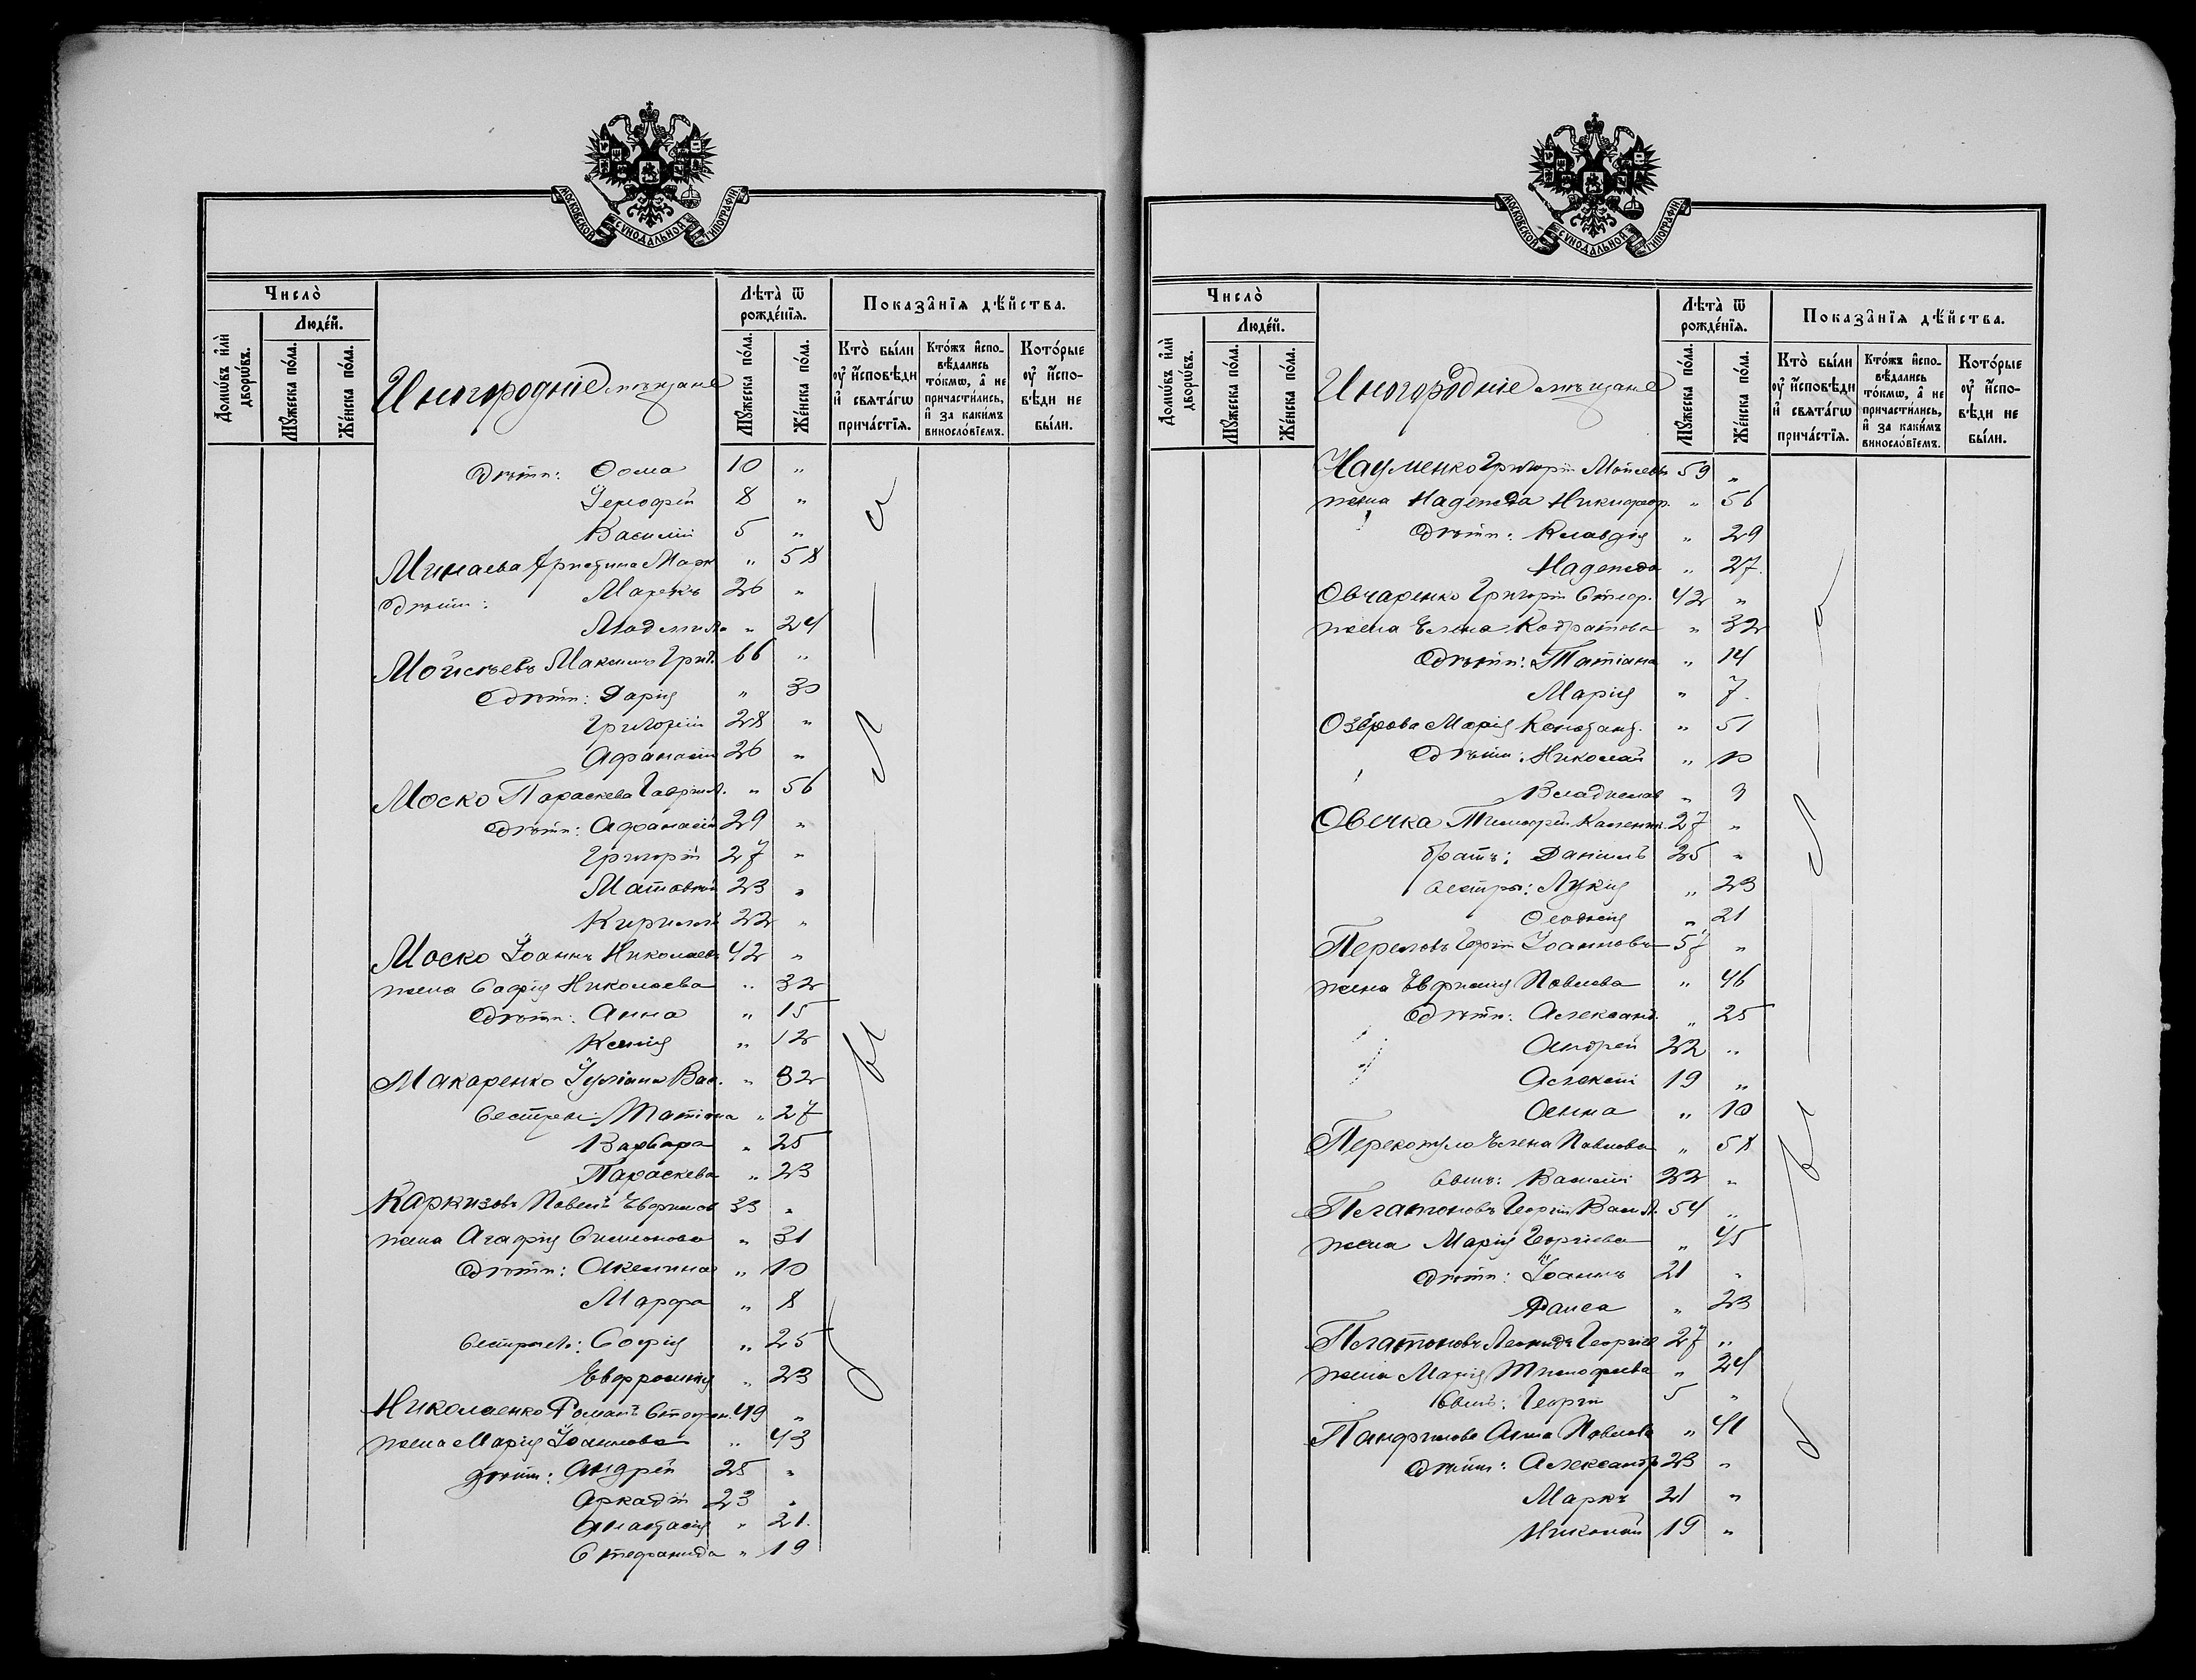 МОСКОВСКОЙ СУНОДАЛЬНОЙ ТИПОГРАФІИ
Число̀
Люде́й.
Домѡ́въ и҆лѝ дворѡ́въ.
Мꙋ́жеска по́ла.
Же́нска по́ла.
Иногородніе мѣщане
Лѣта̀ ѿ рожде́нїѧ.
Мꙋ́жеска по́ла.
Же́нска по́ла.
Показа̑нїѧ дѣ́йства.
Кто̀ бы́ли ᲂу҆ и҆́сповѣди и҆ свѧта́гѡ прича́стїѧ.
Кто́жъ и҆спо-вѣ́дались то́кмѡ, а҆ не причасти́лись, и҆ за каки́мъ виносло́вїемъ.
Кото́рые ᲂу҆ и҆́спо-вѣди не бы́ли.
дѣти: Ѳома 10 "
Тимофей 8 "
Василій 5 "
Минаева Христина Марк " 58
дѣти: Маркъ 26 "
Людмила " 24
Мойсѣевъ Максимъ Григ. 66 "
дѣти: Дарія " 30
Григорій 28 "
Афанасій 26 "
Моско Параскева Гаврил. " 56
дѣти: Афанасій 29 "
Григорій 27 "
Матовій 23 "
Кириллъ 22 "
Моско Іоаннъ Николаевъ 42 "
жена Софія Николаева " 32
дѣти: Анна " 15
Ксенія " 12
Макаренко Іуліана Вас. " 32
сестры: Татіана " 27
Варвара " 25
Параскева " 23
Каркизовъ Павелъ Ефимов 33 "
жена Агафія Симеонова " 31
дѣти: Акилина " 10
Марфа " 8
сестры: Софія " 25
Евфросинія " 23
Николаенко Романъ Стефан. 49 "
жена Марія Іоаннова " 43
дѣти: Андрей 25 "
Аркадій 23 "
Анастасія " 21
Стефанида " 19
были
МОСКОВСКОЙ СУНОДАЛЬНОЙ ТИПОГРАФІИ
Число̀
Люде́й.
Домѡ́въ и҆лѝ дворѡ́въ.
Мꙋ́жеска по́ла.
Же́нска по́ла.
Иногородніе мѣщане
Лѣта̀ ѿ рожде́нїѧ.
Мꙋ́жеска по́ла.
Же́нска по́ла.
Показа̑нїѧ дѣ́йства.
Кто̀ бы́ли ᲂу҆ и҆́сповѣди и҆ свѧта́гѡ прича́стїѧ.
Кто́жъ и҆спо-вѣ́дались то́кмѡ, а҆ не причасти́лись, и҆ за каки́мъ виносло́вїемъ.
Кото́рые ᲂу҆ и҆́спо-вѣди не бы́ли.
Науменко Григорій Мойсеевъ 59 "
жена Надежда Никифор. " 56
дѣти: Клавдія " 29
Надежда " 27.
Овчаренко Григорій Стеф. 42 "
жена Елена Кодратова " 32
дѣти: Татіана " 14
Марія " 7.
Озерова Марія Констант. " 51
дѣти: Николай " 10
Владиславъ " 9
Овечка Тимофей 27 "
братъ: Даніилъ 25 "
сестры: Лукія " 23
Ѳеодосія " 21
Переловъ Георгій Іоанновъ 57 "
жена Евфимія Павлова " 46
дѣти: Александ. " 25
Андрей 22 "
Алексій 19 "
Анна " 10
Перекотило Елена Павлова " 58
сынъ: Василій 22 "
Платоновъ Георгій Васил. 54 "
жена Марія Георгіева " 45
дѣти: Іоаннъ 21 "
Раиса " 23
Платоновъ Леонидъ Георгіе 27 "
жена Марія Тимофеева " 24
сынъ: Георгій 5 "
Панфилова Анна Павлова " 41
дѣти: Александръ 23 "
Маркъ 21 "
Николай 19 "
были